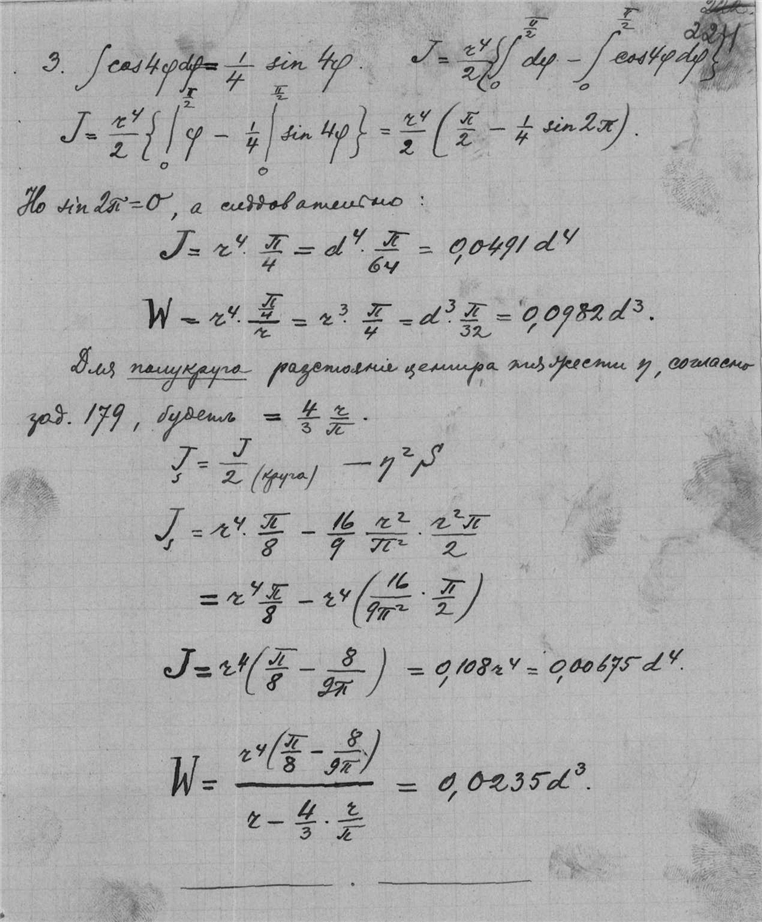 221
3. ∫cos4φdφ = 1/4 sin 4φ. J = r⁴/2 {∫₀^(π/2) dφ − ∫₀^(π/2) cos4φdφ}
J = r⁴/2 {|₀^(π/2) φ − 1/4 |₀^(π/2) sin 4φ} = r⁴/2 (π/2 − 1/4 sin 2π).
Но sin 2π = 0, а следовательно:
J = r⁴ · π/4 = d⁴ · π/64 = 0,0491 d⁴
W = r⁴ · (π/4)/r = r³ · π/4 = d³ · π/32 = 0,0982 d³.
Для полукруга разстояніе центра тяжести η, согласно
зад. 179, будетъ = 4/3 r/π.
Jₛ = J/2 (круга) − η² S
Jₛ = r⁴ · π/8 − 16/9 r²/π² · r²π/2
= r⁴ π/8 − r⁴ (16/9π² · π/2)
J = r⁴ (π/8 − 8/9π) = 0,108 r⁴ = 0,00675 d⁴.
W = r⁴(π/8 − 8/9π) / (r − 4/3 · r/π) = 0,0235 d³.